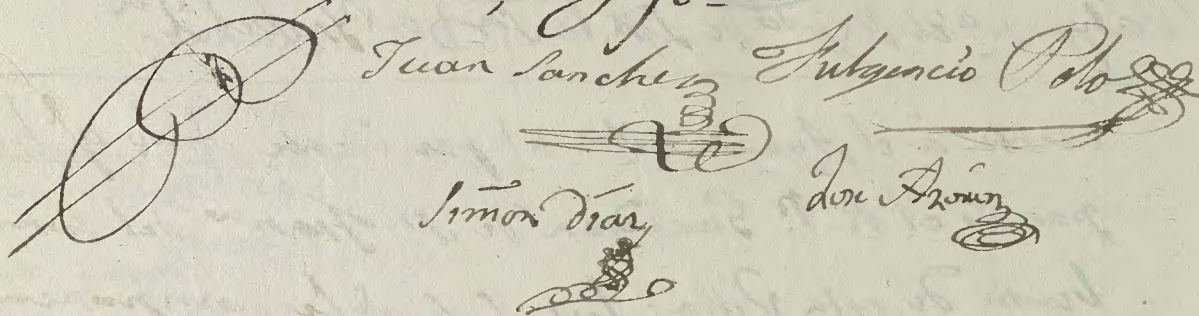 Juan Sanchez Fulgencio Polo
Simon Diaz Jose Azorin